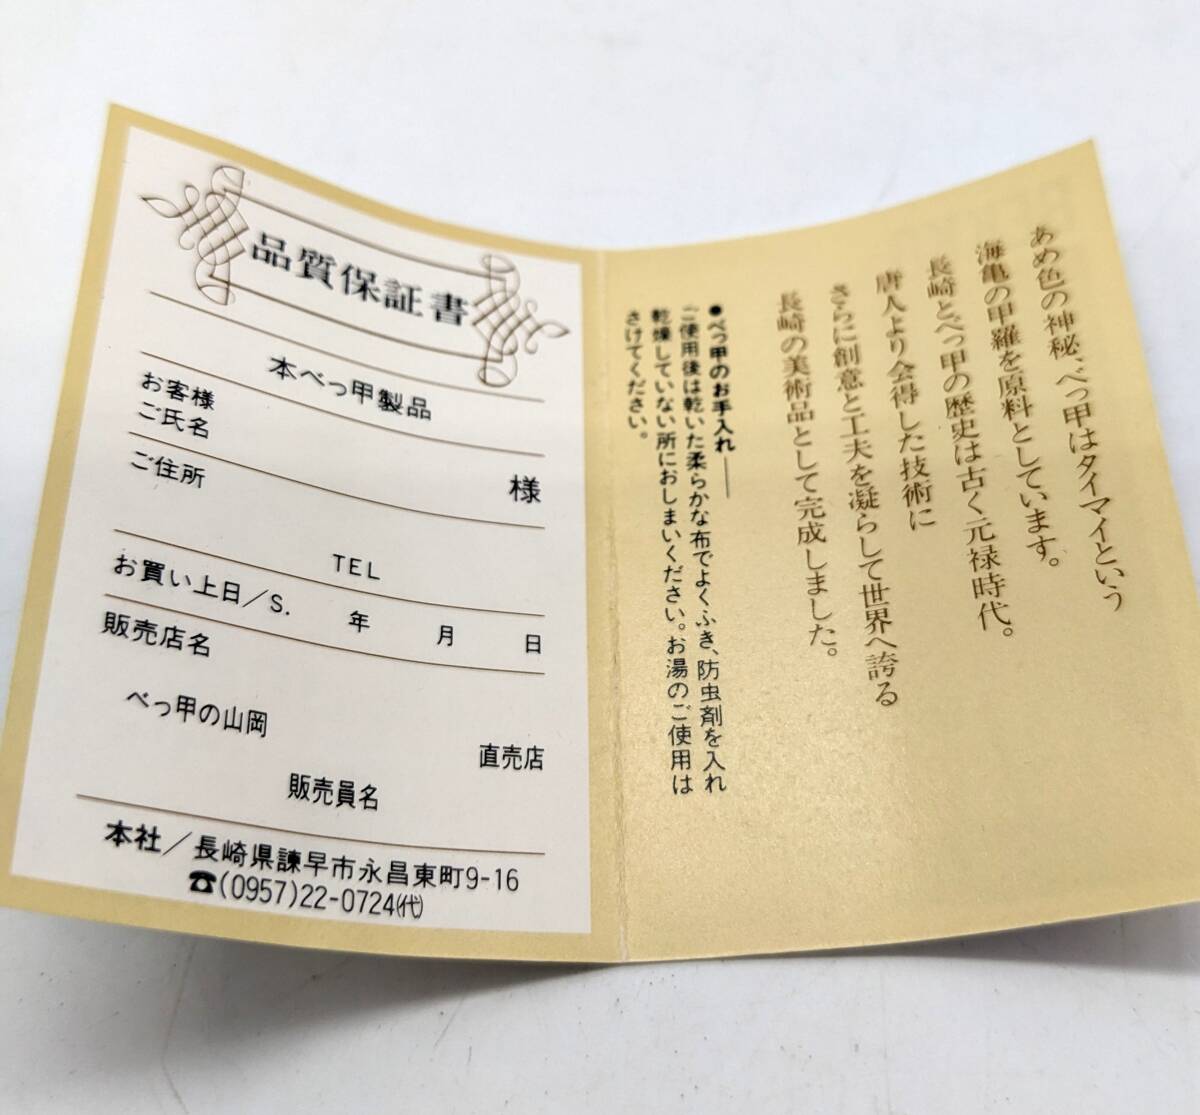 品質保証書
本べっ甲製品
お客様
ご氏名
様
ご住所
TEL
お買い上日/S. 年 月 日
販売店名
べっ甲の山岡
直売店
販売員名
本社/長崎県諫早市永昌東町9-16
☎(0957)22-0724㈹
あめ色の神秘、べっ甲はタイマイという
海亀の甲羅を原料としています。
長崎とべっ甲の歴史は古く元禄時代。
唐人より会得した技術に
さらに創意と工夫を凝らして世界へ誇る
長崎の美術品として完成しました。
●べっ甲のお手入れ——
ご使用後は乾いた柔らかな布でよくふき、防虫剤を入れ
乾燥していない所におしまいください。お湯のご使用は
さけてください。